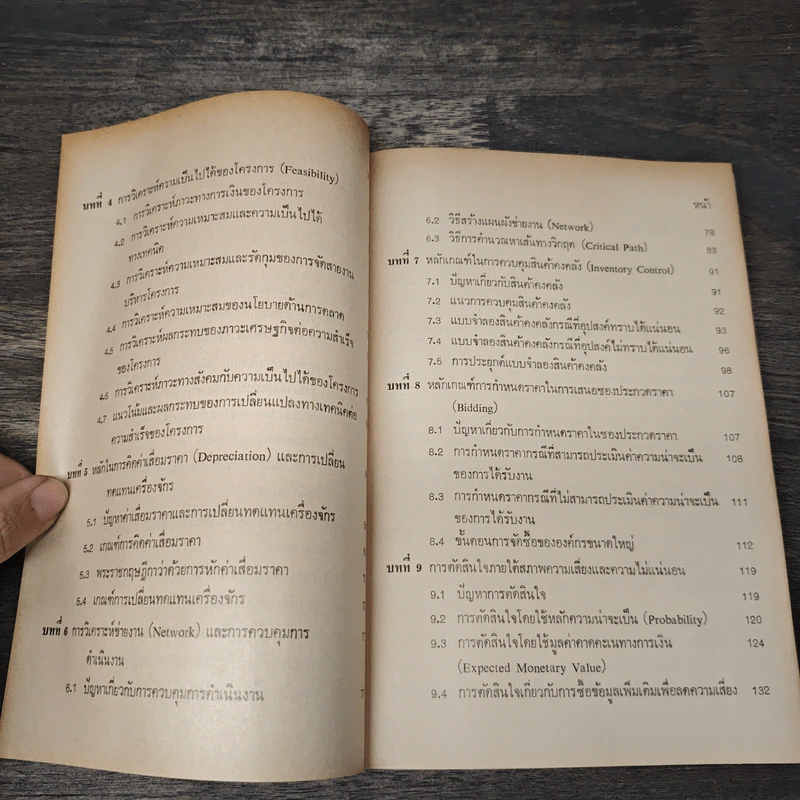 บทที่ 4 การวิเคราะห์ความเป็นไปได้ของโครงการ (Feasibility)
4.1 การวิเคราะห์ภาวะทางการเงินของโครงการ
4.2 การวิเคราะห์ความเหมาะสมและความเป็นไปได้
ทางเทคนิค
4.3 การวิเคราะห์ความเหมาะสมและรัดกุมของการจัดสายงาน
บริหารโครงการ
4.4 การวิเคราะห์ความเหมาะสมของนโยบายด้านการตลาด
4.5 การวิเคราะห์ผลกระทบของภาวะเศรษฐกิจต่อความสำเร็จ
ของโครงการ
4.6 การวิเคราะห์ภาวะทางสังคมกับความเป็นไปได้ของโครงการ
4.7 แนวโน้มและผลกระทบของการเปลี่ยนแปลงทางเทคนิคต่อ
ความสำเร็จของโครงการ
บทที่ 5 หลักในการคิดค่าเสื่อมราคา (Depreciation) และการเปลี่ยน
ทดแทนเครื่องจักร
5.1 ปัญหาค่าเสื่อมราคาและการเปลี่ยนทดแทนเครื่องจักร
5.2 เกณฑ์การคิดค่าเสื่อมราคา
5.3 พระราชกฤษฎีกาว่าด้วยการหักค่าเสื่อมราคา
5.4 เกณฑ์การเปลี่ยนทดแทนเครื่องจักร
บทที่ 6 การวิเคราะห์ข่ายงาน (Network) และการควบคุมการ
ดำเนินงาน
6.1 ปัญหาเกี่ยวกับการควบคุมการดำเนินงาน
หน้า
6.2 วิธีสร้างแผนผังข่ายงาน (Network) 78
6.3 วิธีการคำนวณหาเส้นทางวิกฤต (Critical Path) 83
บทที่ 7 หลักเกณฑ์ในการควบคุมสินค้าคงคลัง (Inventory Control) 91
7.1 ปัญหาเกี่ยวกับสินค้าคงคลัง 91
7.2 แนวการควบคุมสินค้าคงคลัง 92
7.3 แบบจำลองสินค้าคงคลังกรณีที่อุปสงค์ทราบได้แน่นอน 93
7.4 แบบจำลองสินค้าคงคลังกรณีที่อุปสงค์ไม่ทราบได้แน่นอน 96
7.5 การประยุกต์แบบจำลองสินค้าคงคลัง 98
บทที่ 8 หลักเกณฑ์การกำหนดราคาในการเสนอซองประกวดราคา 107
(Bidding)
8.1 ปัญหาเกี่ยวกับการกำหนดราคาในซองประกวดราคา 107
8.2 การกำหนดราคากรณีที่สามารถประเมินค่าความน่าจะเป็น 108
ของการได้รับงาน
8.3 การกำหนดราคากรณีที่ไม่สามารถประเมินค่าความน่าจะเป็น 111
ของการได้รับงาน
8.4 ขั้นตอนการจัดซื้อขององค์กรขนาดใหญ่ 112
บทที่ 9 การตัดสินใจภายใต้สภาพความเสี่ยงและความไม่แน่นอน 119
9.1 ปัญหาการตัดสินใจ 119
9.2 การตัดสินใจโดยใช้หลักความน่าจะเป็น (Probability) 120
9.3 การตัดสินใจโดยใช้มูลค่าคาดคะเนทางการเงิน 124
(Expected Monetary Value)
9.4 การตัดสินใจเกี่ยวกับการซื้อข้อมูลเพิ่มเติมเพื่อลดความเสี่ยง 132